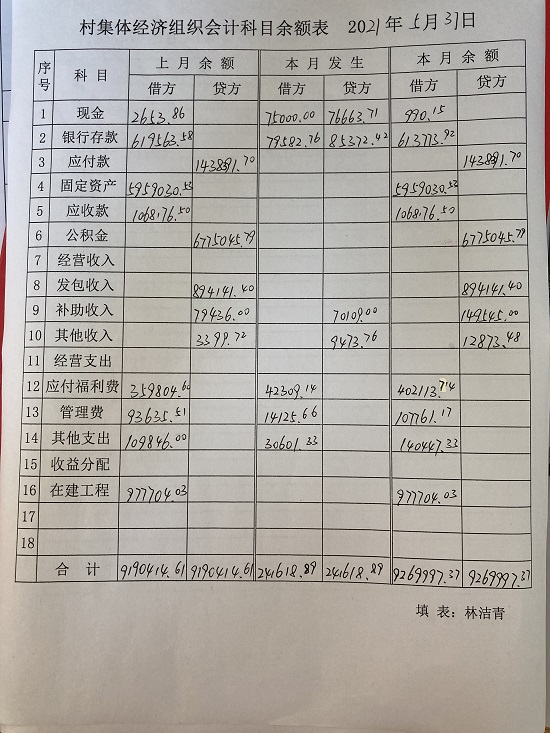 村集体经济组织会计科目余额表 2021年5月31日
序号 科目 上月余额 本月发生 本月余额
借方 贷方 借方 贷方 借方 贷方
1 现金 2653.86 75000.00 76663.71 990.15
2 银行存款 619563.58 79582.76 85372.42 613773.92
3 应付款 1438391.70 1438391.70
4 固定资产 5959030.53 5959030.53
5 应收款 1068176.50 1068176.50
6 公积金 6775045.79 6775045.79
7 经营收入
8 发包收入 894141.40 894141.40
9 补助收入 79436.00 70109.00 149545.00
10 其他收入 3399.72 9473.76 12873.48
11 经营支出
12 应付福利费 359804.60 42309.14 402113.74
13 管理费 93635.51 14125.66 107761.17
14 其他支出 109846.00 30601.33 140447.33
15 收益分配
16 在建工程 977704.03 977704.03
17
18
合计 9190414.61 9190414.61 241618.89 241618.89 9269997.37 9269997.37
填表：林洁青